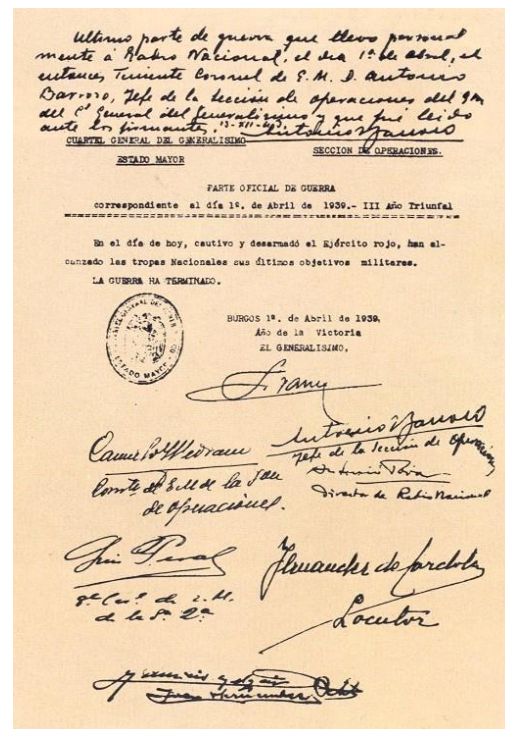 Ultimo parte de guerra que llevo personal
mente á Radio Nacional, el dia 1º de abril, el
entonces Teniente Coronel de E. M. D. Antonio
Barroso, Jefe de la Sección de operaciones del
del Cl General del Generalisimo y que fué leido
ante los firmantes. Antonio Barroso
CUARTEL GENERAL DEL GENERALISIMO
ESTADO MAYOR
SECCION DE OPERACIONES.
PARTE OFICIAL DE GUERRA
correspondiente al día 1º. de Abril de 1939.- III Año Triunfal
En el día de hoy, cautivo y desarmadó el Ejército rojo, han al-
canzado las tropas Nacionales sus últimos objetivos militares.
LA GUERRA HA TERMINADO.
BURGOS 1º. de Abril de 1939,
Año de la Victoria
EL GENERALISIMO,
ESTADO MAYOR
Franco
Antonio Barroso
Jefe de la Sección de Operaciones
Carmelo Medrano
Comte de E. M. de la
de operaciones.
Antonio
Director de Radio Nacional
Luis
de E. M.
de la Sº 2ª
Fernandez de Cordoba
Locutor